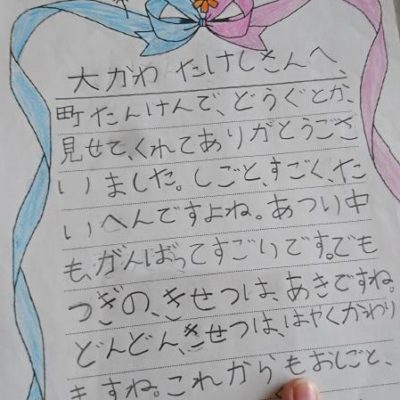 大がわ たけしさんへ、
町たんけんで、どうぐとか、
見せて、くれてありがとうござ
いました。しごと、すごく、た
いへんですよね。あつい中
も、がんばってすごいです。でも
つぎの、きせつは、あきですね。
どんどん、きせつは、はやくかわり
ますね。これからもおしごと、